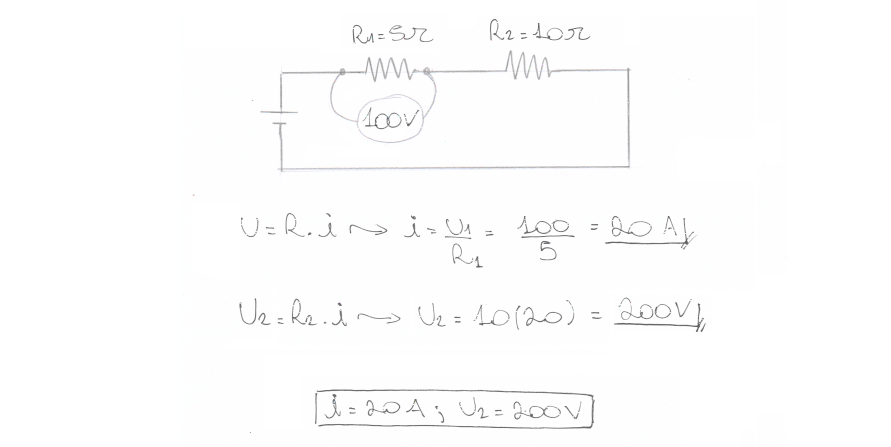 R1=5Ω R2=10Ω
100V
U=R.i ⤳ i=U1/R1 = 100/5 = 20 A
U2=R2.i ⤳ U2=10(20) = 200V
i=20A; U2=200V